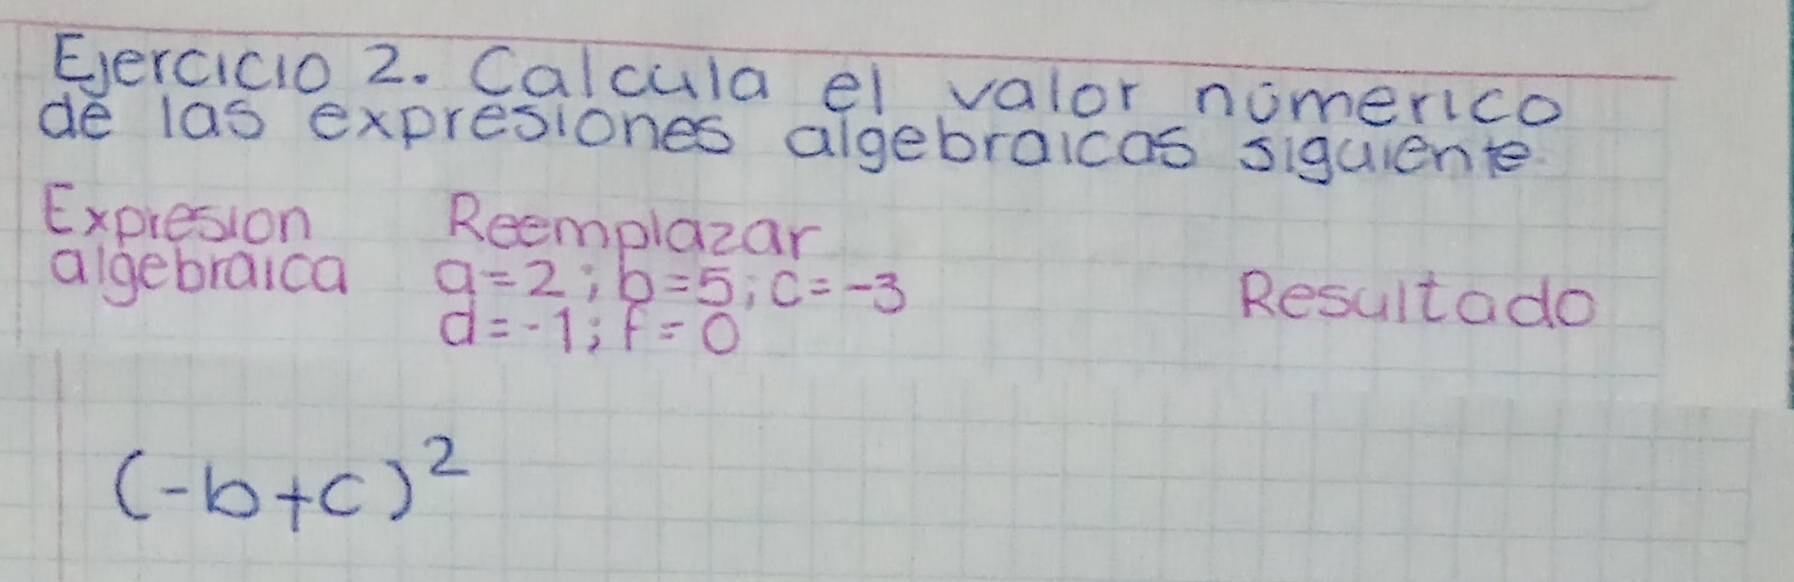 Ejercicio 2. Calcula el valor númerico
de las expresiones algebraicas siguiente.
Expresion Reemplazar
algebraica a=2; b=5; c=-3 Resultado
d=-1; f=0
(-b+c)²